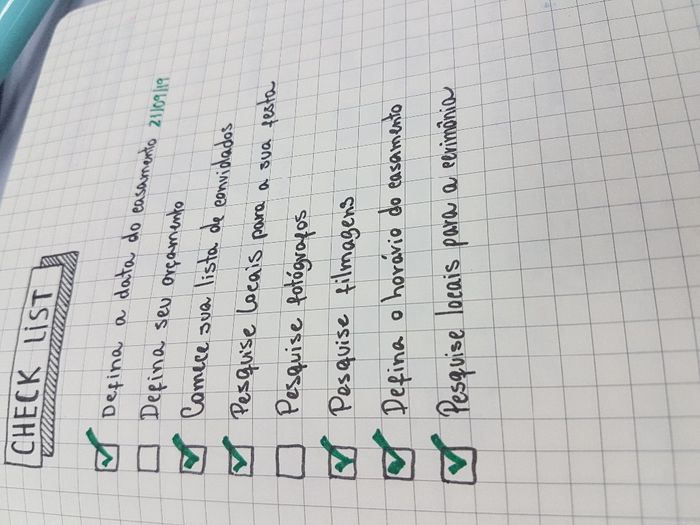 CHECK LIST
Defina a data do casamento 21/09/19
Defina seu orçamento
Comece sua lista de convidados
Pesquise locais para a sua festa
Pesquise fotógrafos
Pesquise filmagens
Defina o horário do casamento
Pesquise locais para a cerimônia